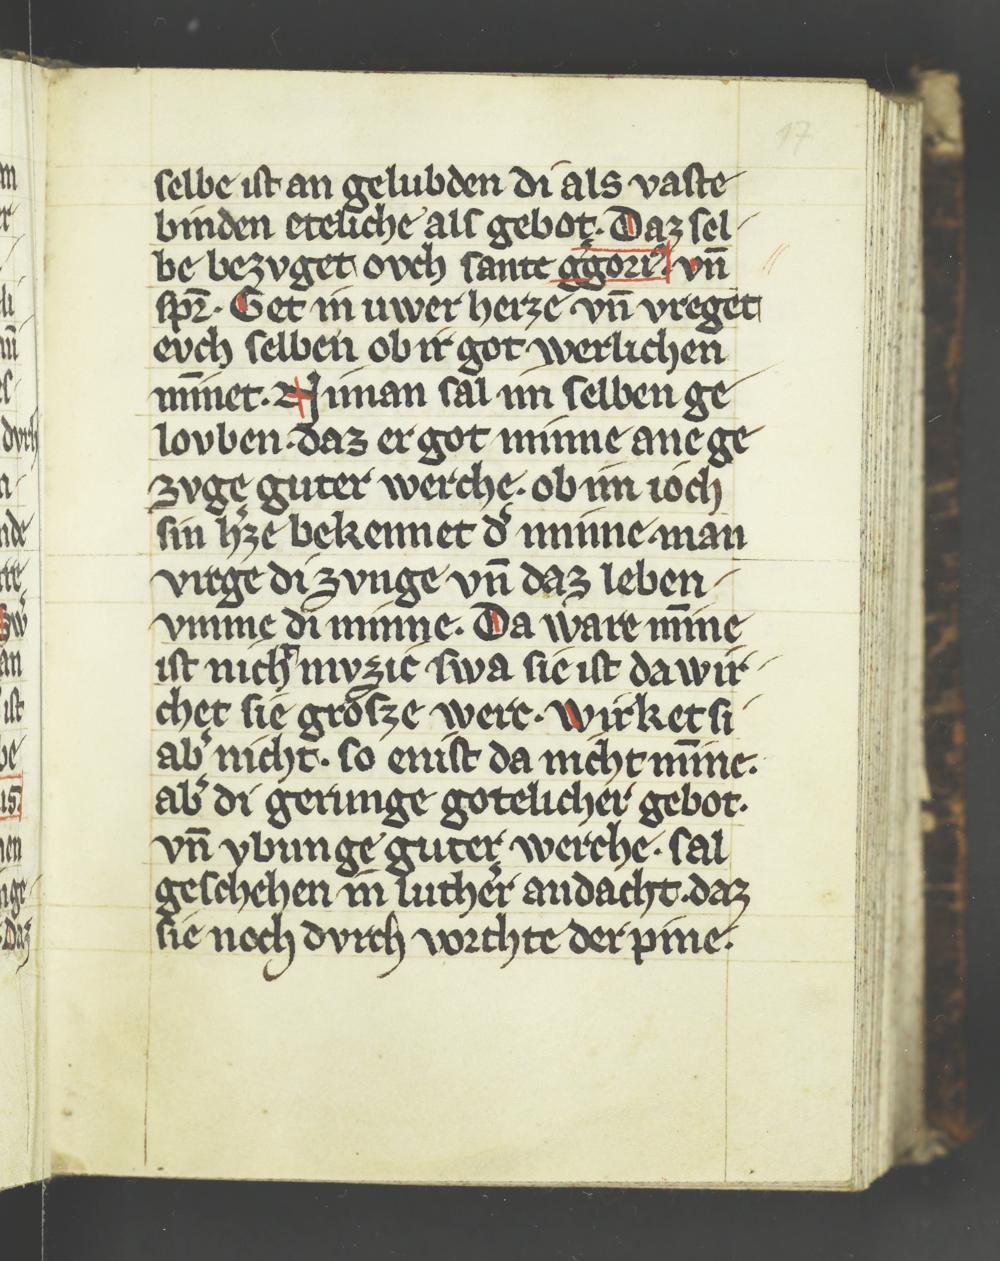 17
selbe ist an gelubden di als vaste
binden eteliche als gebot. Daz sel
be bezvget ovch sante ggori᾿. vn̄
spr̄. Get in uwer herze vn̄ vreget
evch selben ob ir got werlichen
mīnet. Niman sal im selben ge
lovben. daz er got minne ane ge
zvge guter werche. ob im ioch
sin h᾿ze bekennet d᾿ minne. man
vrege di zvnge vn̄ daz leben
vmme di minne. Da ware mīne
ist nich᾿ mvzic swa sie ist da wir
chet sie grosze werc. Wirket si
ab᾿ nicht. so enist da nicht mīne.
ab᾿ di gerunge gotelicher gebot.
vn̄ ybunge guter werche. sal
geschehen in luther andacht. daz
sie noch dvrch vorchte der pine.